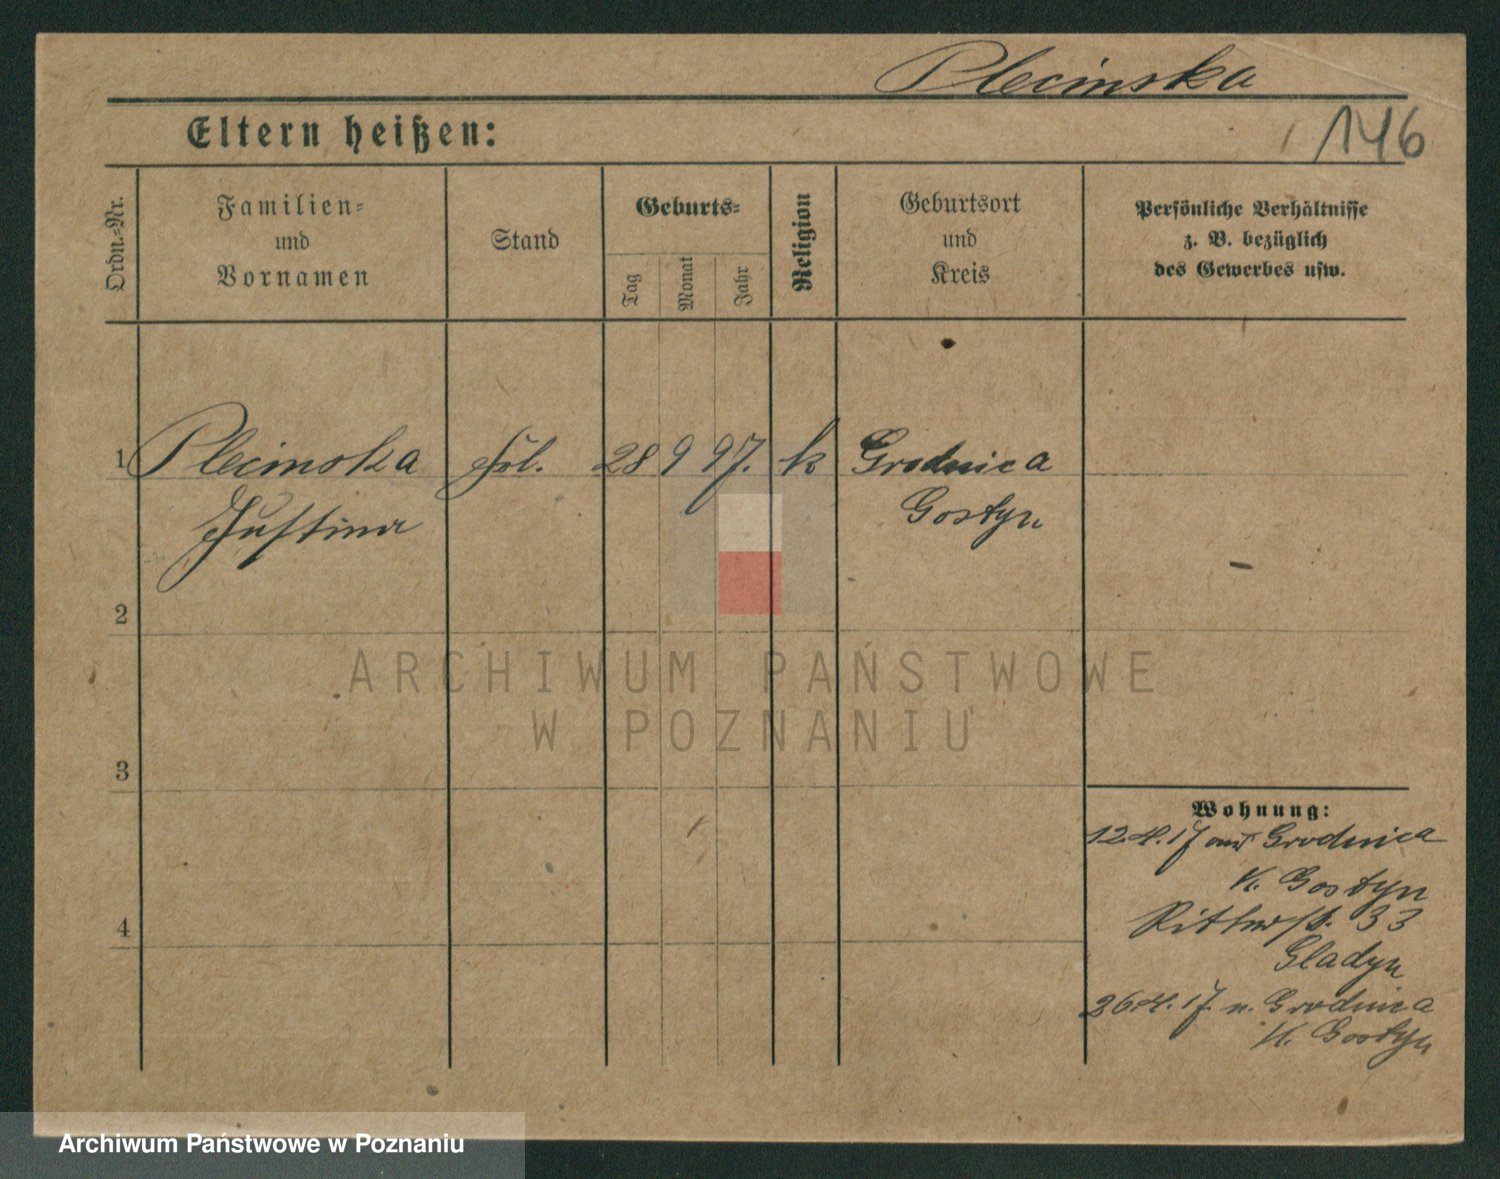 Plecinska
146
Eltern heißen:
Ordn.-Nr.
Familien-
und
Vornamen
Stand
Geburts-
Tag
Monat
Jahr
Religion
Geburtsort
und
Kreis
Persönliche Verhältnisse
z. B. bezüglich
des Gewerbes usw.
1 Plecinska Frl. 28 9 97. k Grodnica
Justina Gostyn
2
3
4
ARCHIWUM PAŃSTWOWE
W POZNANIU
Wohnung:
12.4.17 aus Grodnica
K. Gostyn
Ritterst. 33
Gladyn
26.4.17. n. Grodnica
K. Gostyn
Archiwum Państwowe w Poznaniu